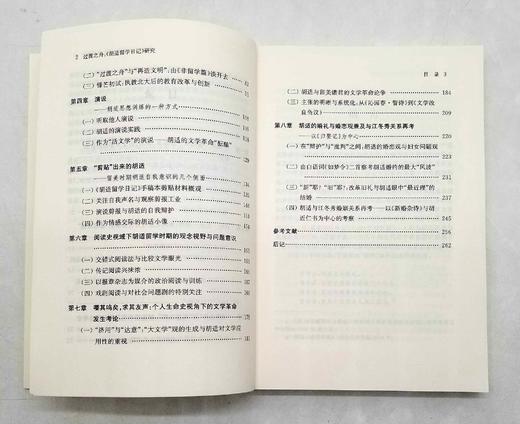 2 过渡之舟:《胡适留学日记》研究
(二)“过渡之舟”与“再造文明”:由《非留学篇》谈开去
(三)锋芒初试:执教北大后的教育改革与创新
第四章 演说
——胡适思想训练的一种方式
(一)听取他人演说
(二)胡适的演说实践
(三)作为“活文学”的演说——胡适的文学革命“酝酿”
第五章 “剪贴”出来的胡适
——留美时期胡适自我意识的几个侧面
(一)《胡适留学日记》手稿本剪贴材料概观
(二)关注自我声名与观察舆报工业
(三)演说剪报与胡适的自我辩护
(四)作为情感交际的胡适小像
第六章 阅读史视域下胡适留学时期的观念视野与问题意识
(一)交错式阅读法与比较文学眼光
(二)传记阅读兴味浓
(三)以报章杂志为媒介的政治阅读与训练
(四)戏剧阅读与对社会问题剧的特别关注
第七章 嘤其鸣矣,求其友声:个人生命史视角下的文学革命
发生考论 179
(一)“济河”与“达意”:“大文学”观的生成与胡适对文学应
用性的重视 181
目录 3
(二)胡适与留美诸君的文学革命论争 184
(三)主张的明晰与系统化:从《沁园春·誓诗》到《文学改
良刍议》
第八章 胡适的婚礼与婚恋观兼及与江冬秀关系再考
——以《归娶记》为中心
(一)在“辩护”与“批判”之间:胡适的婚恋观与妇女问题观
(二)由白话词《如梦令》二首看考胡适婚约的最大“风波”
(三)“新”耶?“旧”耶?:改革旧礼与胡适眼中“最近理”的
结婚
(四)胡适与江冬秀婚姻关系再考——以《新婚杂诗》与胡
近仁书为中心的考察 245
参考文献 256
后记 262